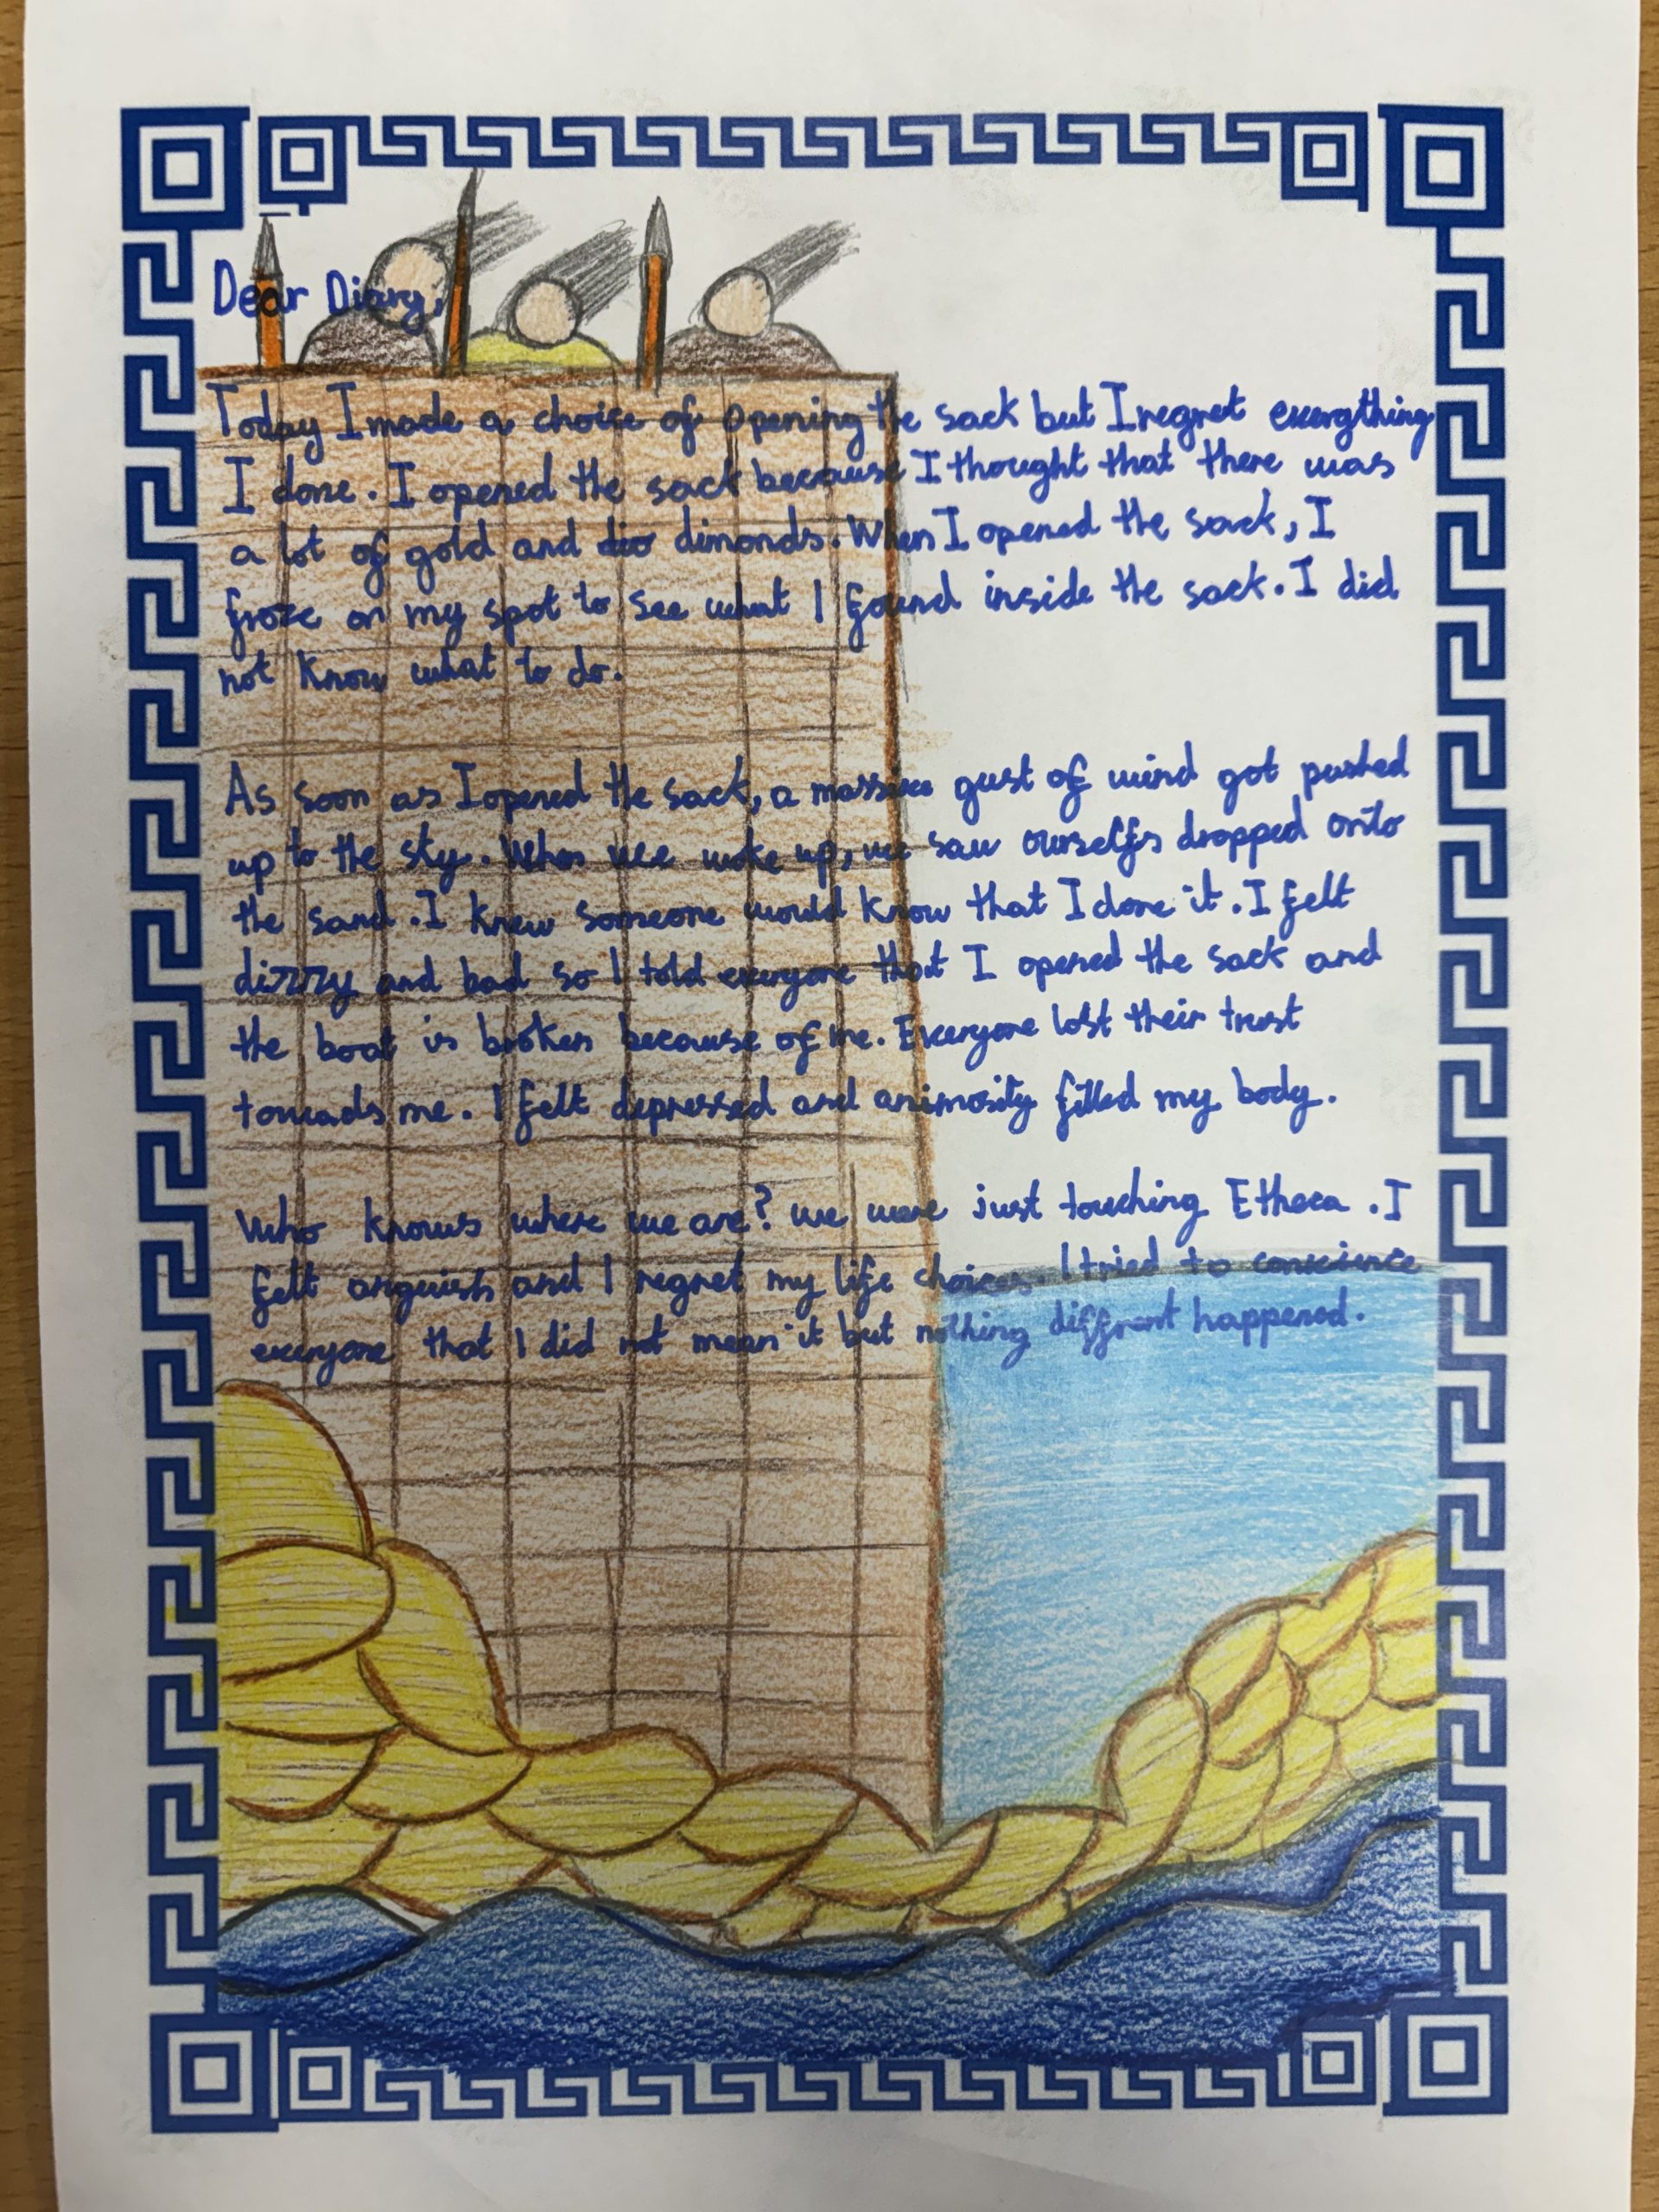 Dear Diary,
Today I made a choice of opening the sack but I regret everything
I done. I opened the sack because I thought that there was
a lot of gold and dimonds. When I opened the sack, I
froze on my spot to see what I found inside the sack. I did
not know what to do.
As soon as I opened the sack, a massive gust of wind got pushed
up to the sky. When we woke up, we saw ourselfs dropped onto
the sand. I knew someone would know that I done it. I felt
dizzy and bad so I told everyone that I opened the sack and
the boat is broken because of me. Everyone lost their trust
towads me. I felt depressed and animosity filled my body.
Who knows where we are? we were just touching Etheca. I
felt anguish and I regret my life choices. I tried to conscience
everyone that I did not mean it but nothing diffrent happened.